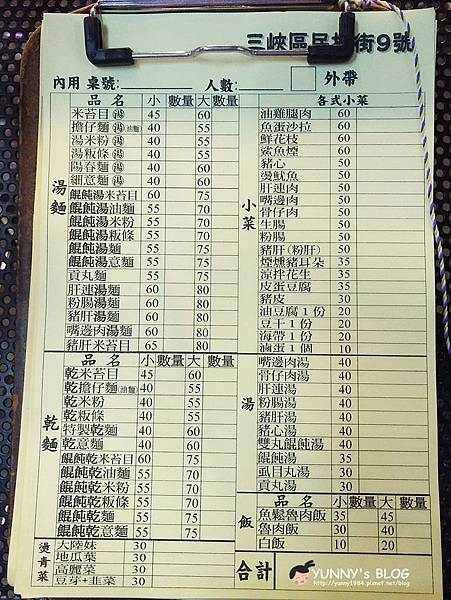 三峽區民權街9號
內用 桌號: 人數: 外帶
湯麵
品名 小 數量 大 數量
米苔目 湯 45 60
擔仔麵(油麵) 湯 40 55
湯米粉 湯 40 55
湯粄條 湯 40 55
陽春麵 湯 40 60
細意麵 湯 40 60
餛飩湯米苔目 60 75
餛飩湯油麵 55 70
餛飩湯米粉 55 70
餛飩湯粄條 55 70
餛飩湯麵 55 75
餛飩湯意麵 55 75
貢丸麵 55 75
肝連湯麵 60 80
粉腸湯麵 60 80
豬肝湯麵 60 80
嘴邊肉湯麵 60 80
豬肝米苔目 65 80
乾麵
品名 小 數量 大 數量
乾米苔目 45 60
乾擔仔麵(油麵) 40 55
乾米粉 40 55
乾粄條 40 55
特製乾麵 40 60
乾意麵 40 60
餛飩乾米苔目 60 75
餛飩乾油麵 55 70
餛飩乾米粉 55 70
餛飩乾粄條 55 70
餛飩乾麵 55 75
餛飩乾意麵 55 75
燙青菜
大陸妹 30
地瓜葉 30
高麗菜 30
豆芽+韭菜 30
小菜
各式小菜
油雞腿肉 60
魚蛋沙拉 60
鮮花枝 60
鯊魚煙 60
豬心 50
燙魷魚 50
肝連肉 50
嘴邊肉 50
骨仔肉 50
生腸 50
粉腸 50
豬肝(粉肝) 50
煙燻豬耳朵 35
涼拌花生 35
皮蛋豆腐 35
豬皮 30
油豆腐1份 20
豆干1份 20
海帶1份 20
滷蛋1個 10
湯
嘴邊肉湯 40
骨仔肉湯 40
肝連湯 40
粉腸湯 40
豬肝湯 40
豬心湯 40
雙丸餛飩湯 40
餛飩湯 35
虱目丸湯 30
貢丸湯 30
飯
品名 小 數量 大 數量
魚鬆魯肉飯 35 45
魯肉飯 30 40
白飯 10 20
合計
YUNNY's BLOG
http://yunny1984.pixnet.net/blog